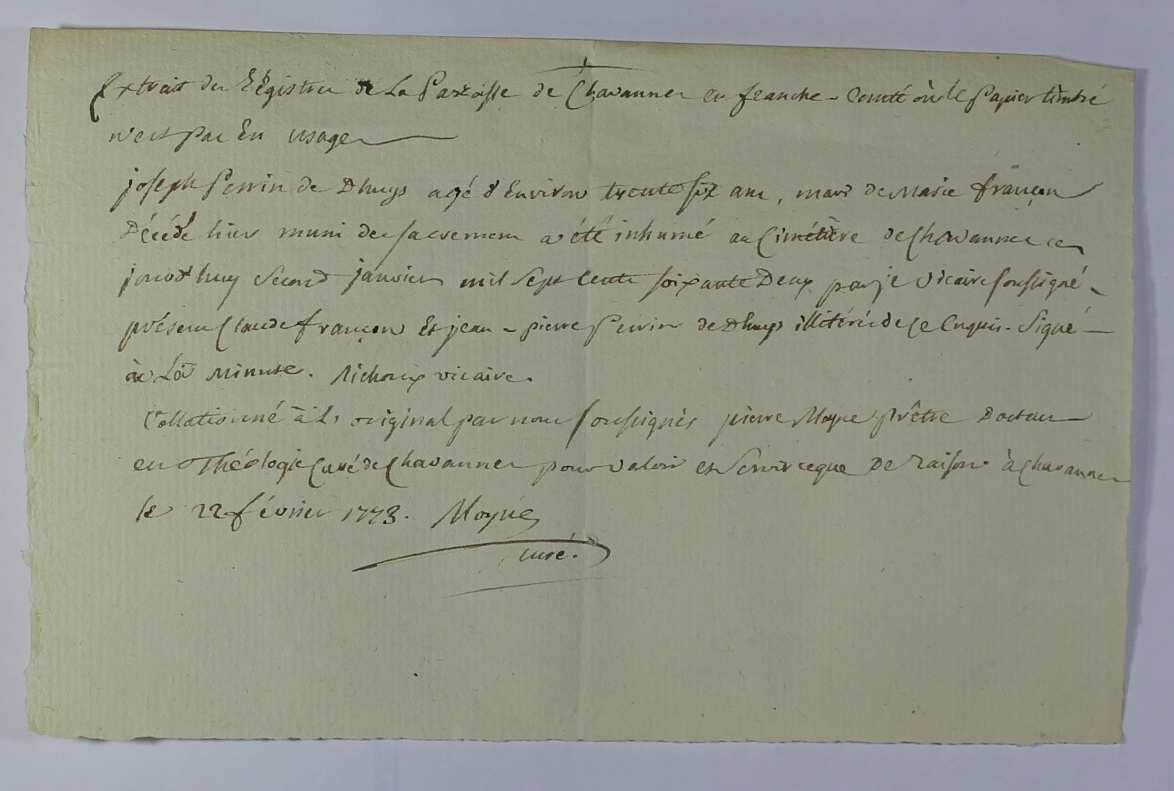 Extrait des Régistres de La Paroisse de Chavannes en franche-Comté où le papier timbré
n'est pas En usage
joseph Perrin de Dhuys agé d'Environ trente six ans, mary de Marie françon
Décédé hier muni des sacremens a été inhumé au Cimétière de Chavannes ce
jourd'huy second janvier mil sept cents soixante Deux par je vicaire soussigné
présens Claude françon Et jean-pierre Perrin de Dhuys illitérés de ce Enquis. Signé
à La minute. Richoux vicaire.
Collationné à l'original par nous soussignés pierre Moyne prêtre Docteur
en Théologie Curé de Chavannes pour valoir et servir ce que De raison à chavannes
le 22 février 1773. Moyne
curé.